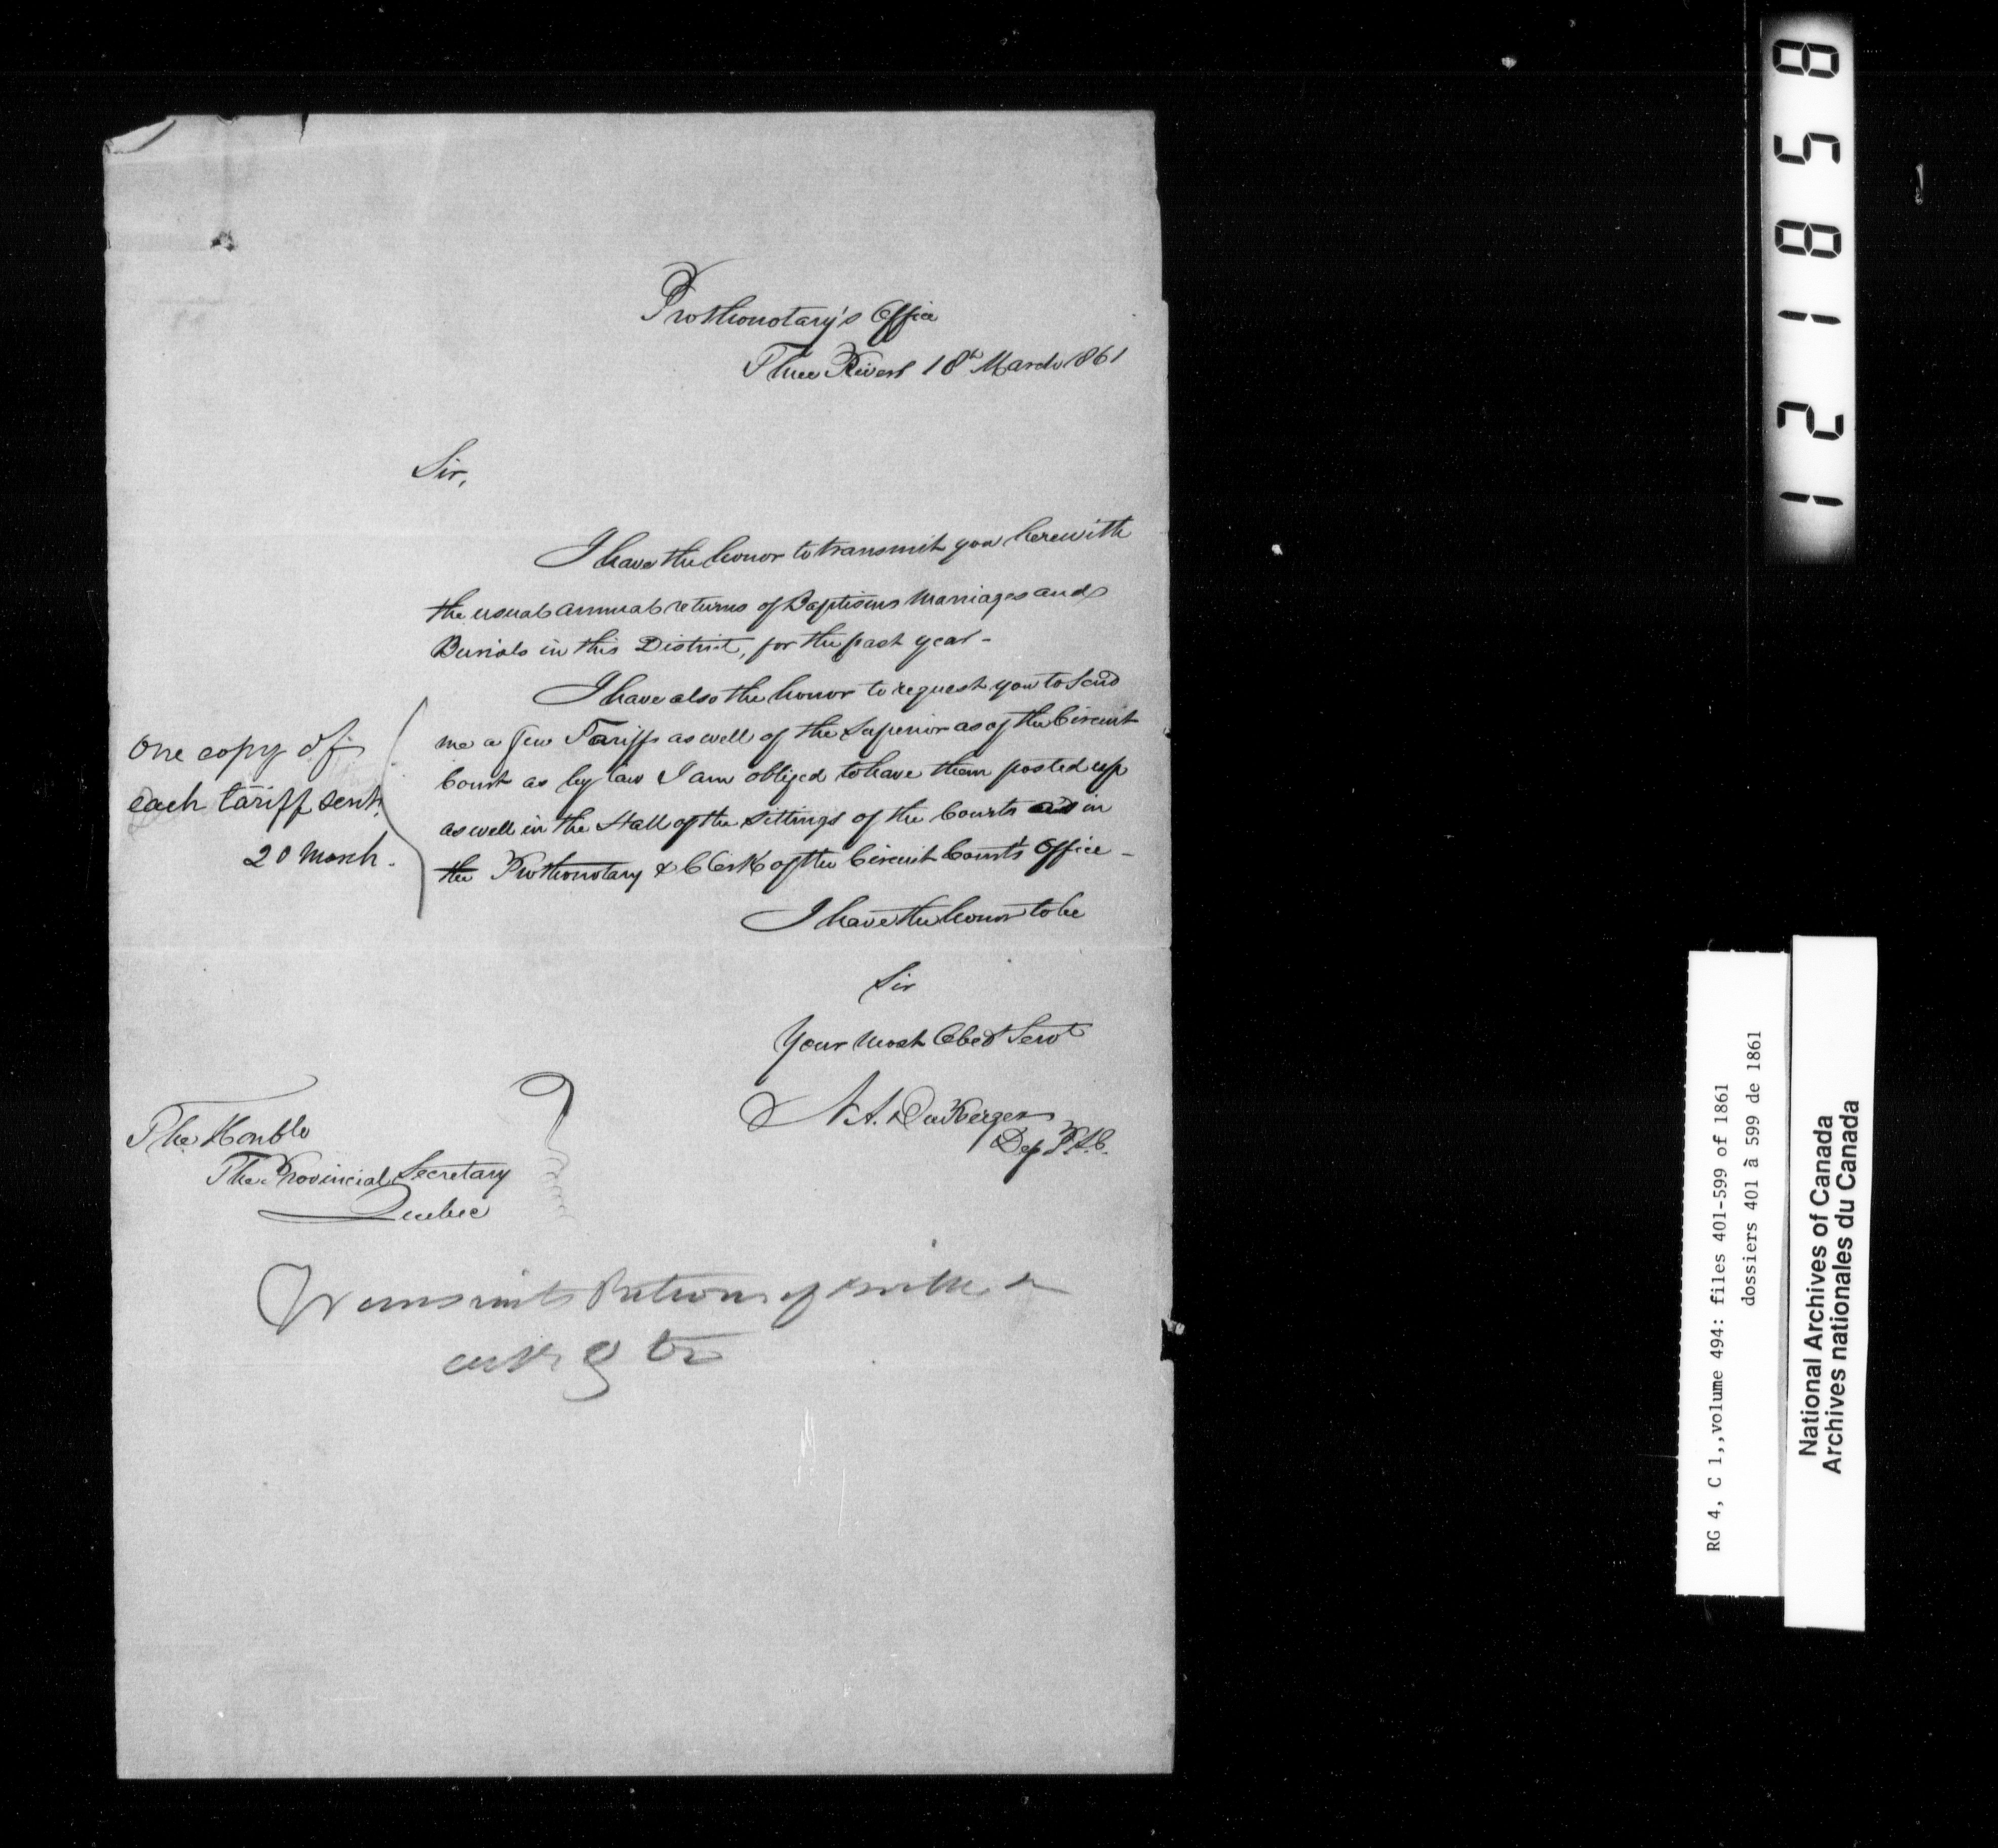 Prothonotary's Office
Three Rivers 18th March 1861
Sir,
I have the honor to transmit you herewith
the usual annual returns of Baptisms Marriages and
Burials in this District, for the past year -
I have also the honor to request you to send
me a few Tariffs as well of the Superior as of the Circuit
Court as by law I am obliged to have them posted up
as well in the Hall of the sittings of the Courts as in
the Prothonotary & Clerk of the Circuit Courts Office -
I have the honor to be
Sir
Your most Obedt Servt
Dep P.S.C.
One copy of
each tariff sent.
20 March.
The Honble
The Provincial Secretary
Quebec
Transmits Return of
121858
RG 4, C 1,,volume 494: files 401-599 of 1861
dossiers 401 à 599 de 1861
National Archives of Canada
Archives nationales du Canada